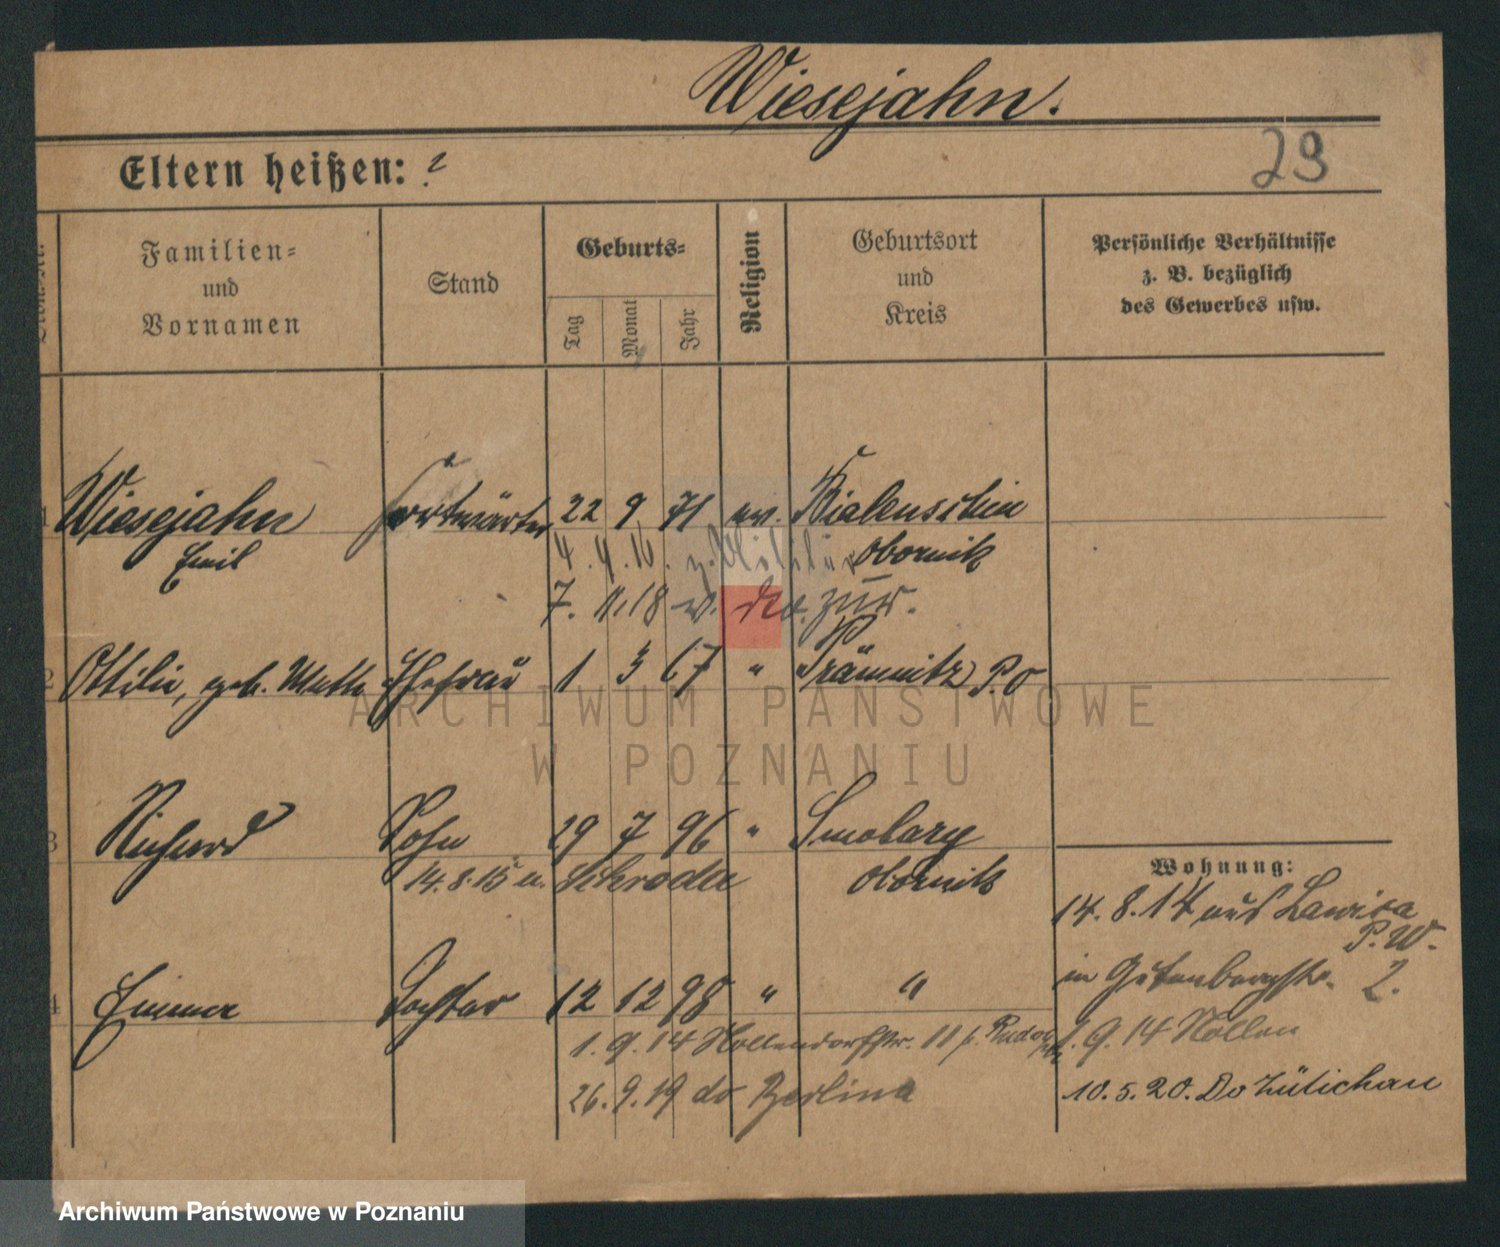 Wiesejahn.
Eltern heißen: ?
29
Familien- und Vornamen
Stand
Geburts-
Tag
Monat
Jahr
Religion
Geburtsort und Kreis
Persönliche Verhältnisse z. B. bezüglich des Gewerbes usw.
1 Wiesejahn 22 9 71 ev.
Emil Obornik
7. 11. 18 v. do. zur.
2 Ottilie, geb. Ehefrau 1 3 67 " Prämnitz P.O
ARCHIWUM PAŃSTWOWE
W POZNANIU
3 Richard Sohn 29 7 96 " Smolary
14. 8. 15 n. Schroda Obornik
Wohnung:
14. 8. 14 aus Lawica
P.W.
in Gutenbergstr. 2.
4 Emma Tochter 12 12 98 " "
1. 9. 14 Nollendorfstr. 11
1. 9. 14 Nollen
26. 9. 19 do Berlin
10. 5. 20. Do Zülichau
Archiwum Państwowe w Poznaniu